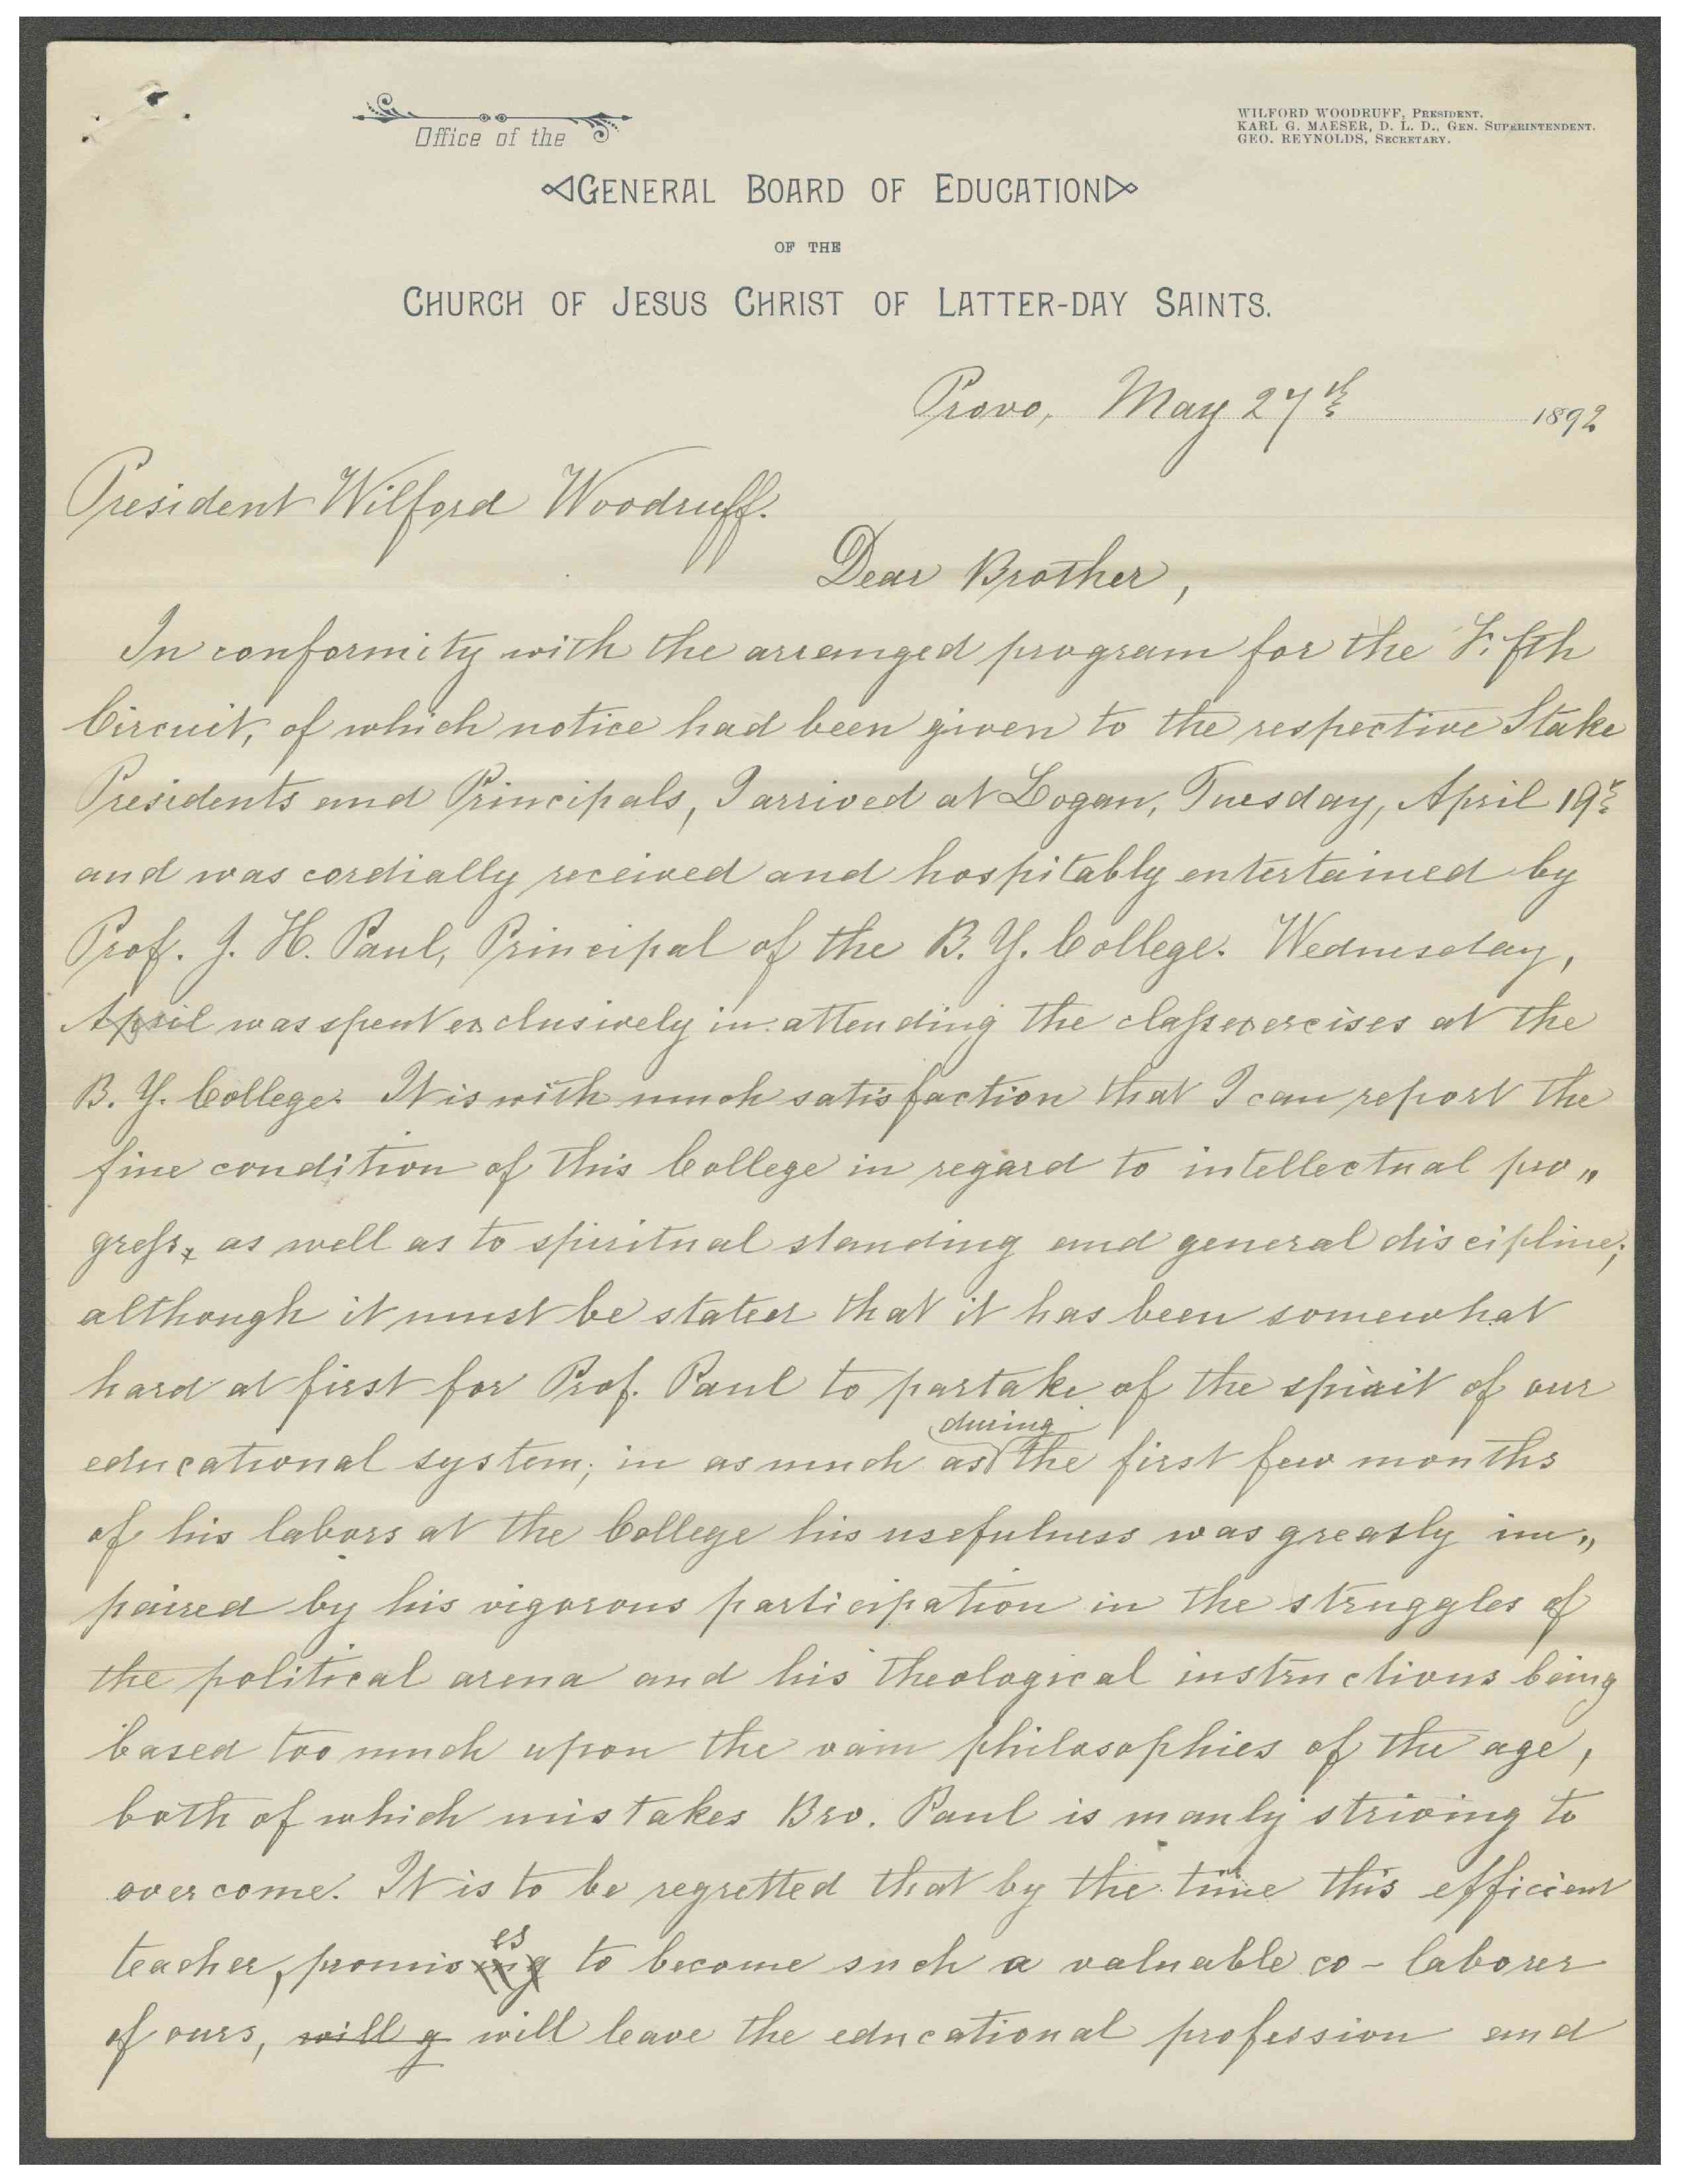 WILFORD WOODRUFF, PRESIDENT.
KARL G. MAESER, D. L. D., GEN. SUPERINTENDENT.
GEO. REYNOLDS, SECRETARY.
Office of the
GENERAL BOARD OF EDUCATION
OF THE
CHURCH OF JESUS CHRIST OF LATTER-DAY SAINTS.
Provo, May 27th 1892
President Wilford Woodruff.
Dear Brother,
In conformity with the arranged program for the Fifth
Circuit, of which notice had been given to the respective Stake
Presidents and Principals, I arrived at Logan, Tuesday, April 19th
and was cordially received and hospitably entertained by
Prof. J. H. Paul, Principal of the B. Y. College. Wednesday,
April was spent exclusively in attending the class exercises at the
B. Y. College. It is with much satisfaction that I can report the
fine condition of this College in regard to intellectual pro„
gress, as well as to spiritual standing and general discipline;
although it must be stated that it has been somewhat
hard at first for Prof. Paul to partake of the spirit of our
educational system; in as much as during the first few months
of his labors at the College his usefulness was greatly im„
paired by his vigorous participation in the struggles of
the political arena and his theological instructions being
based too much upon the vain philosophies of the age,
both of which mistakes Bro. Paul is manly striving to
overcome. It is to be regretted that by the time this efficient
teacher, promising es to become such a valuable co-laborer
of ours, will g will leave the educational profession and